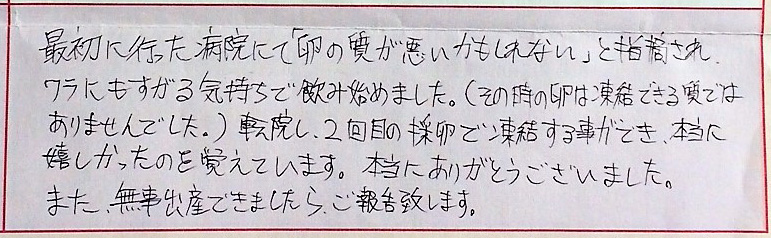 最初に行った病院にて「卵の質が悪いかもしれない」と指摘され、
ワラにもすがる気持ちで飲み始めました。(その時の卵は凍結できる質では
ありませんでした。)転院し、2回目の採卵で凍結する事ができ、本当に
嬉しかったのを覚えています。本当にありがとうございました。
また、無事出産できましたら、ご報告致します。